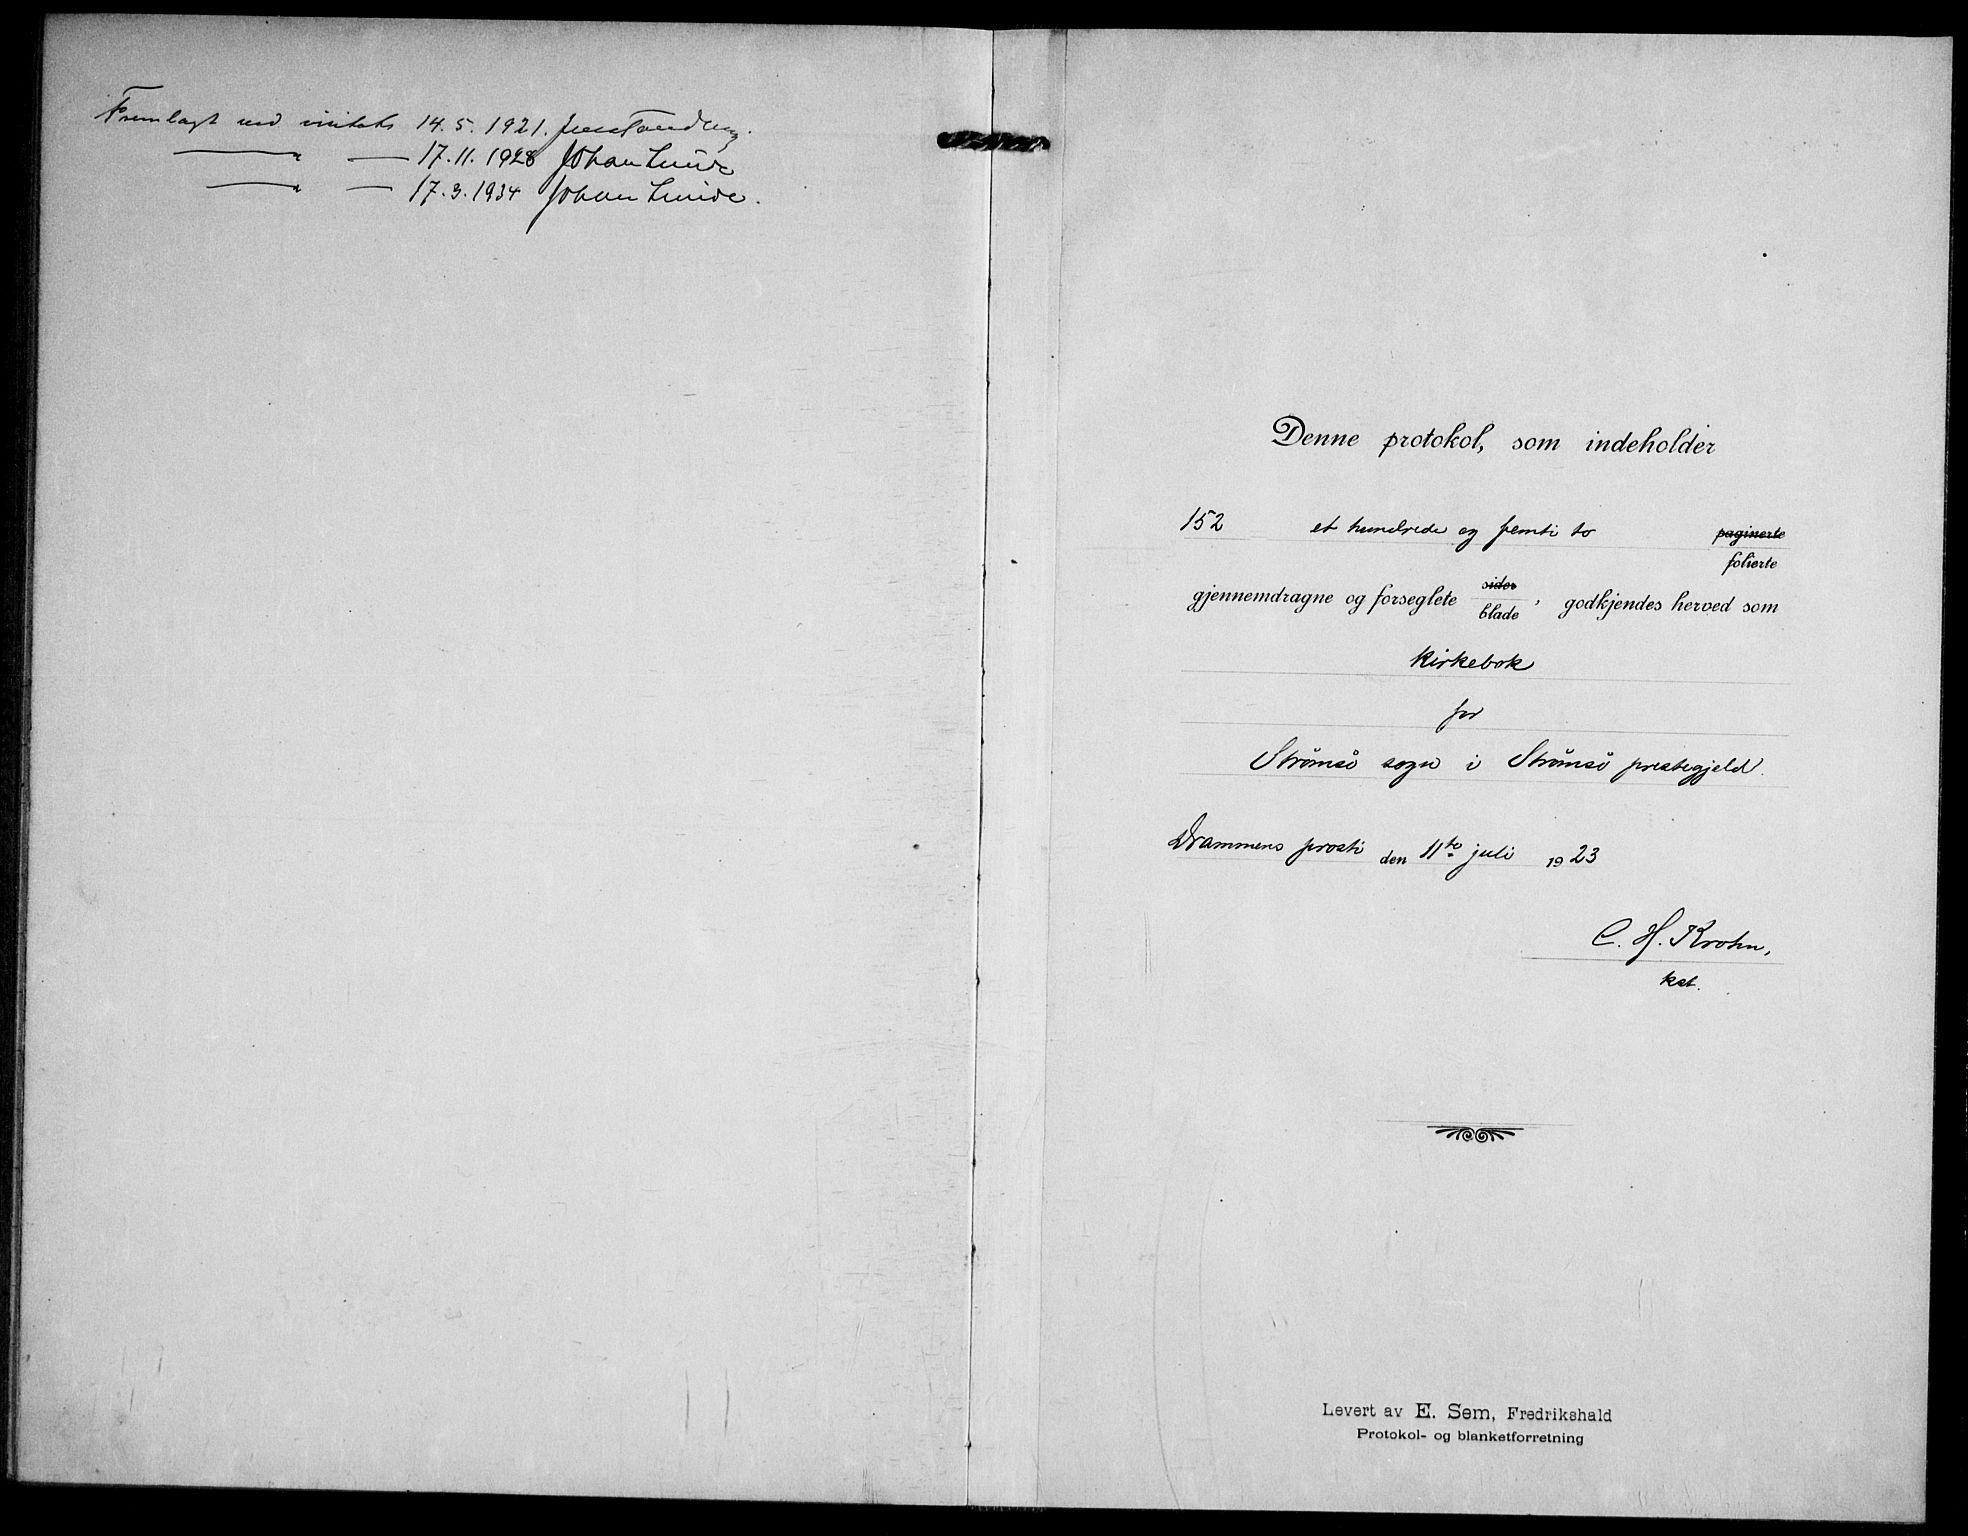 Fremlagt ved visitats 14.5.1921. Jens Tandberg.
— " — 17.11.1928 Johan Lunde
— " — 17.3.1934 Johan Lunde.
Denne protokol, som indeholder
152 et hundrede og femti to ~~paginerte~~
folierte
gjennemdragne og forseglete ~~sider~~ blade, godkjendes herved som
Kirkebok
for
Strømsø sogn i Strømsø prestegjeld.
Drammens prosti den 11te juli 1923
C. H. Krohn,
kst.
Levert av E. Sem, Fredrikshald
Protokol- og blanketforretning